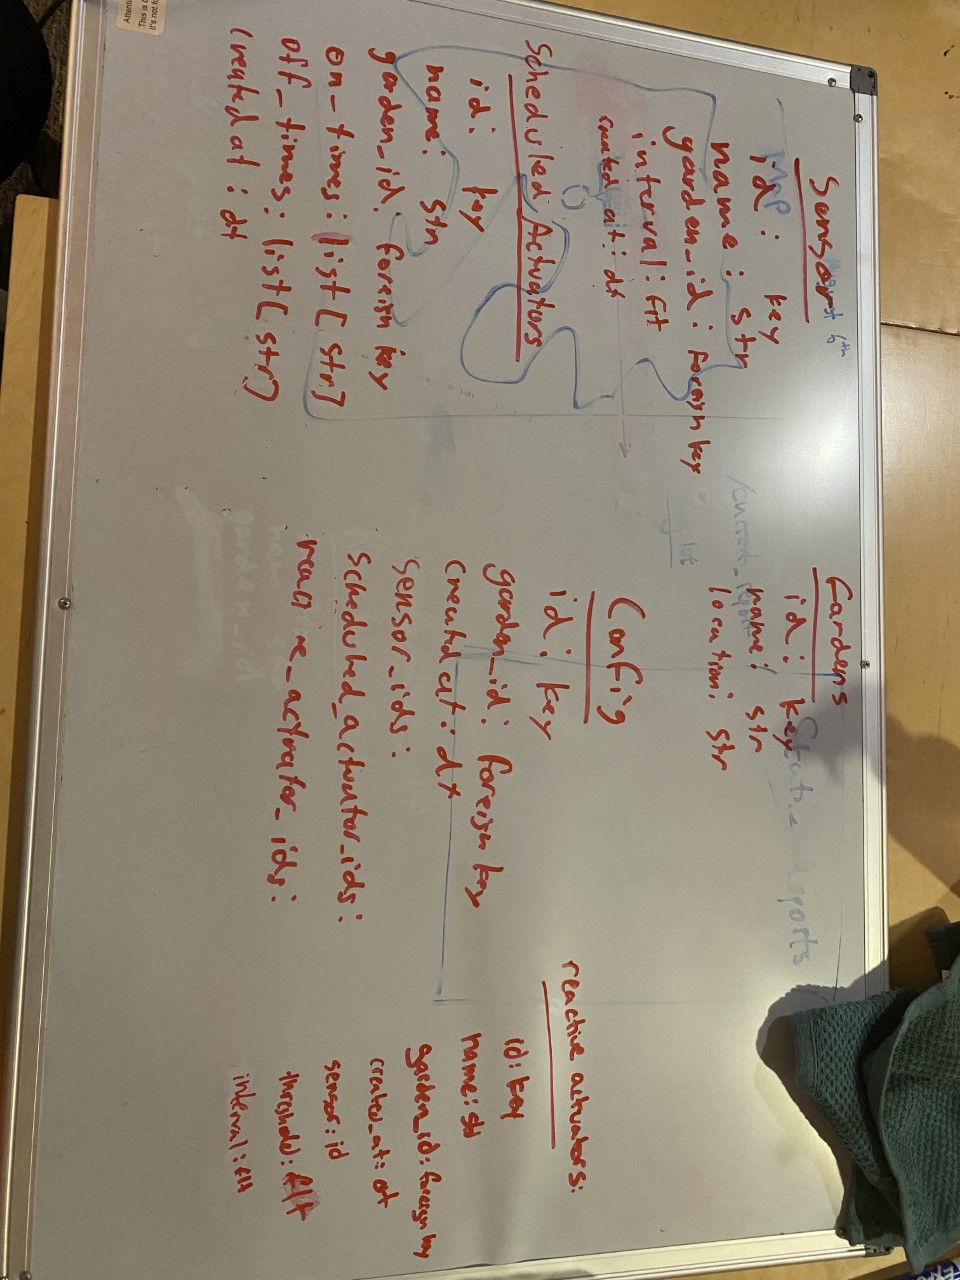 Sensor
id: key
name: str
garden_id: foreign key
interval: flt
created_at: dt
Scheduled Actuators
id: key
name: str
garden_id: foreign key
on_times: list[str]
off_times: list[str]
created at: dt
Gardens
id: key
name: str
location: str
Config
id: key
garden_id: foreign key
created at: dt
sensor_ids:
scheduled_actuator_ids:
_actuator_ids:
reactive actuators:
id: key
name: str
garden_id: foreign key
created_at: dt
sensor: id
threshold: flt
interval: flt
Map
6th
/current_report
reports